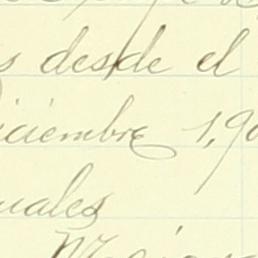 s desde el
iciembre 1,90
uales